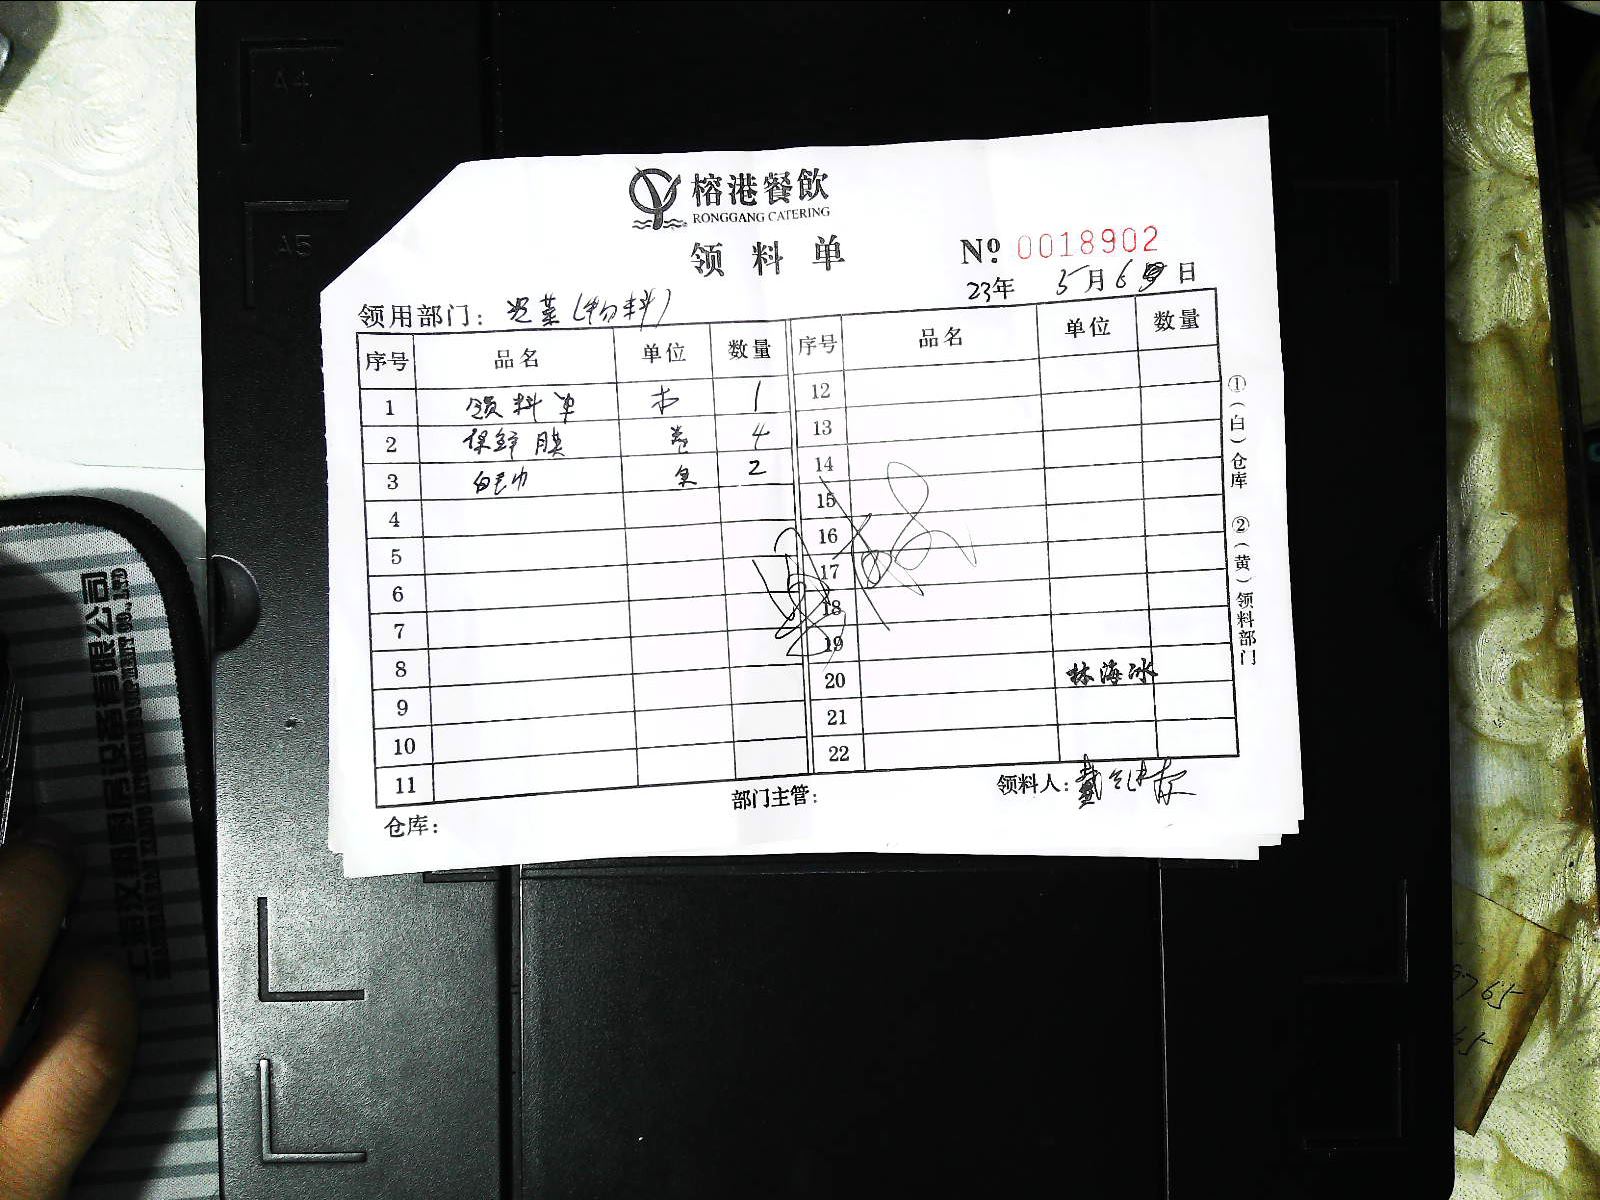 榕港餐飲
RONGGANG CATERING
领料单
№ 0018902
23年 5月6日
领用部门：（物料）
序号 品名 单位 数量 序号 品名 单位 数量
1 领料单 本 1 12
2 保鲜膜 卷 4 13
3 白毛巾 2 14
4 15
5 16
6 17
7 18
8 19
9 20 林海冰
10 21
11 22
仓库： 部门主管： 领料人：
①（白）仓库 ②（黄）领料部门
A4
A5